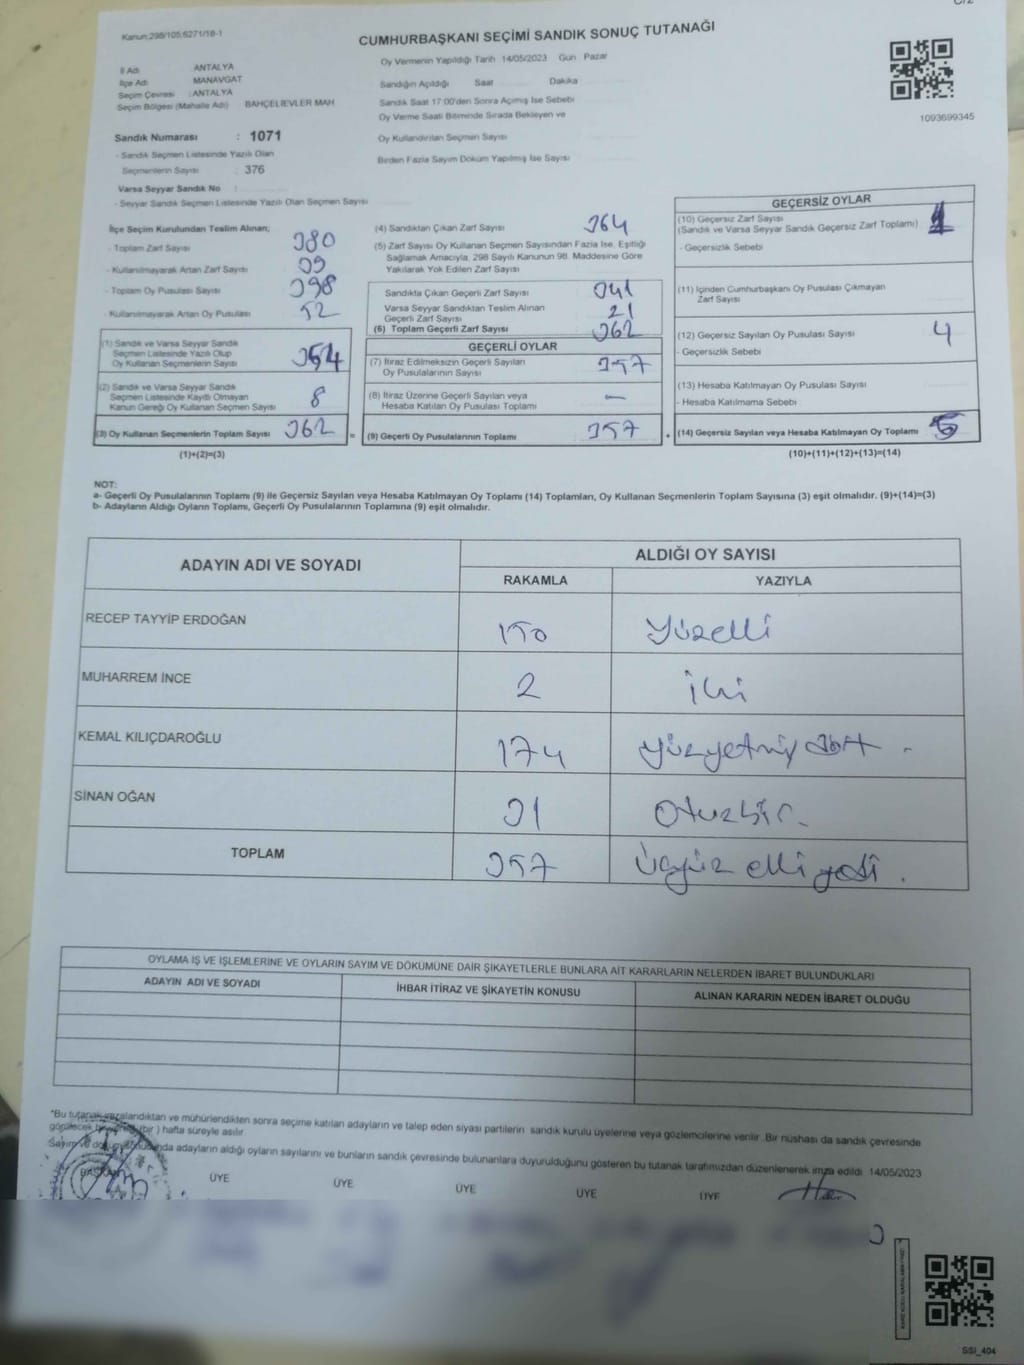 C/2
Kanun;298/105,6271/18-1
CUMHURBAŞKANI SEÇİMİ SANDIK SONUÇ TUTANAĞI
İl Adı ANTALYA
İlçe Adı MANAVGAT
Seçim Çevresi : ANTALYA
Seçim Bölgesi (Mahalle Adı) BAHÇELİEVLER MAH.
Sandık Numarası : 1071
- Sandık Seçmen Listesinde Yazılı Olan
Seçmenlerin Sayısı : 376
Varsa Seyyar Sandık No :
- Seyyar Sandık Seçmen Listesinde Yazılı Olan Seçmen Sayısı
Oy Vermenin Yapıldığı Tarih 14/05/2023 Gün Pazar
Sandığın Açıldığı Saat Dakika
Sandık Saat 17:00'den Sonra Açmış İse Sebebi
Oy Verme Saati Bitiminde Sırada Bekleyen ve
Oy Kullandırılan Seçmen Sayısı
Birden Fazla Sayım Döküm Yapılmış İse Sayısı
1093699345
İlçe Seçim Kurulundan Teslim Alınan;
- Toplam Zarf Sayısı 380
- Kullanılmayarak Artan Zarf Sayısı
- Toplam Oy Pusulası Sayısı 398
- Kullanılmayarak Artan Oy Pusulası 52
(1) Sandık ve Varsa Seyyar Sandık
Seçmen Listesinde Yazılı Olup
Oy Kullanan Seçmenlerin Sayısı 354
(2) Sandık ve Varsa Seyyar Sandık
Seçmen Listesinde Kayıtlı Olmayan
Kanun Gereği Oy Kullanan Seçmen Sayısı 8
(3) Oy Kullanan Seçmenlerin Toplam Sayısı 362
(1)+(2)=(3)
=
(4) Sandıktan Çıkan Zarf Sayısı 364
(5) Zarf Sayısı Oy Kullanan Seçmen Sayısından Fazla İse, Eşitliği
Sağlamak Amacıyla, 298 Sayılı Kanunun 98. Maddesine Göre
Yakılarak Yok Edilen Zarf Sayısı
Sandıkta Çıkan Geçerli Zarf Sayısı 341
Varsa Seyyar Sandıktan Teslim Alınan
Geçerli Zarf Sayısı 21
(6) Toplam Geçerli Zarf Sayısı 362
GEÇERLİ OYLAR
(7) İtiraz Edilmeksizin Geçerli Sayılan
Oy Pusulalarının Sayısı 357
(8) İtiraz Üzerine Geçerli Sayılan veya
Hesaba Katılan Oy Pusulası Toplamı —
(9) Geçerli Oy Pusulalarının Toplamı 357
+
GEÇERSİZ OYLAR
(10) Geçersiz Zarf Sayısı
(Sandık ve Varsa Seyyar Sandık Geçersiz Zarf Toplamı) 1
- Geçersizlik Sebebi
(11) İçinden Cumhurbaşkanı Oy Pusulası Çıkmayan
Zarf Sayısı
(12) Geçersiz Sayılan Oy Pusulası Sayısı 4
- Geçersizlik Sebebi
(13) Hesaba Katılmayan Oy Pusulası Sayısı
- Hesaba Katılmama Sebebi
(14) Geçersiz Sayılan veya Hesaba Katılmayan Oy Toplamı 5
(10)+(11)+(12)+(13)=(14)
NOT:
a- Geçerli Oy Pusulalarının Toplamı (9) ile Geçersiz Sayılan veya Hesaba Katılmayan Oy Toplamı (14) Toplamları, Oy Kullanan Seçmenlerin Toplam Sayısına (3) eşit olmalıdır. (9)+(14)=(3)
b- Adayların Aldığı Oyların Toplamı, Geçerli Oy Pusulalarının Toplamına (9) eşit olmalıdır.
ADAYIN ADI VE SOYADI ALDIĞI OY SAYISI
RAKAMLA YAZIYLA
RECEP TAYYİP ERDOĞAN 150 Yüzelli
MUHARREM İNCE 2 iki
KEMAL KILIÇDAROĞLU 174 yüzyetmiş dört
SİNAN OĞAN 31 Otuzbir.
TOPLAM 357 üçyüz elli yedi.
OYLAMA İŞ VE İŞLEMLERİNE VE OYLARIN SAYIM VE DÖKÜMÜNE DAİR ŞİKAYETLERLE BUNLARA AİT KARARLARIN NELERDEN İBARET BULUNDUKLARI
ADAYIN ADI VE SOYADI İHBAR İTİRAZ VE ŞİKAYETİN KONUSU ALINAN KARARIN NEDEN İBARET OLDUĞU
*Bu tutanak imzalandıktan ve mühürlendikten sonra seçime katılan adayların ve talep eden siyasi partilerin sandık kurulu üyelerine veya gözlemcilerine verilir. Bir nüshası da sandık çevresinde
görülecek bir yere (bir) hafta süreyle asılır.
Sayım ve döküm sonunda adayların aldığı oyların sayılarını ve bunların sandık çevresinde bulunanlara duyurulduğunu gösteren bu tutanak tarafımızdan düzenlenerek imza edildi. 14/05/2023
BAŞKAN ÜYE ÜYE ÜYE ÜYE ÜYE
SSI_404